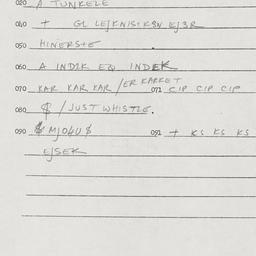 020 A TUNKELE
040 + GL LEJKNISIKSN EJ3R
050 HINERSTE
060 A INDIK EQ INDEK
070 KAR KAR KAR / ER KARKET 071 CIP CIP CIP
080 $ / JUST WHISTLE.
090 $ MJO4U $ 091 + KS KS KS
EJSEK